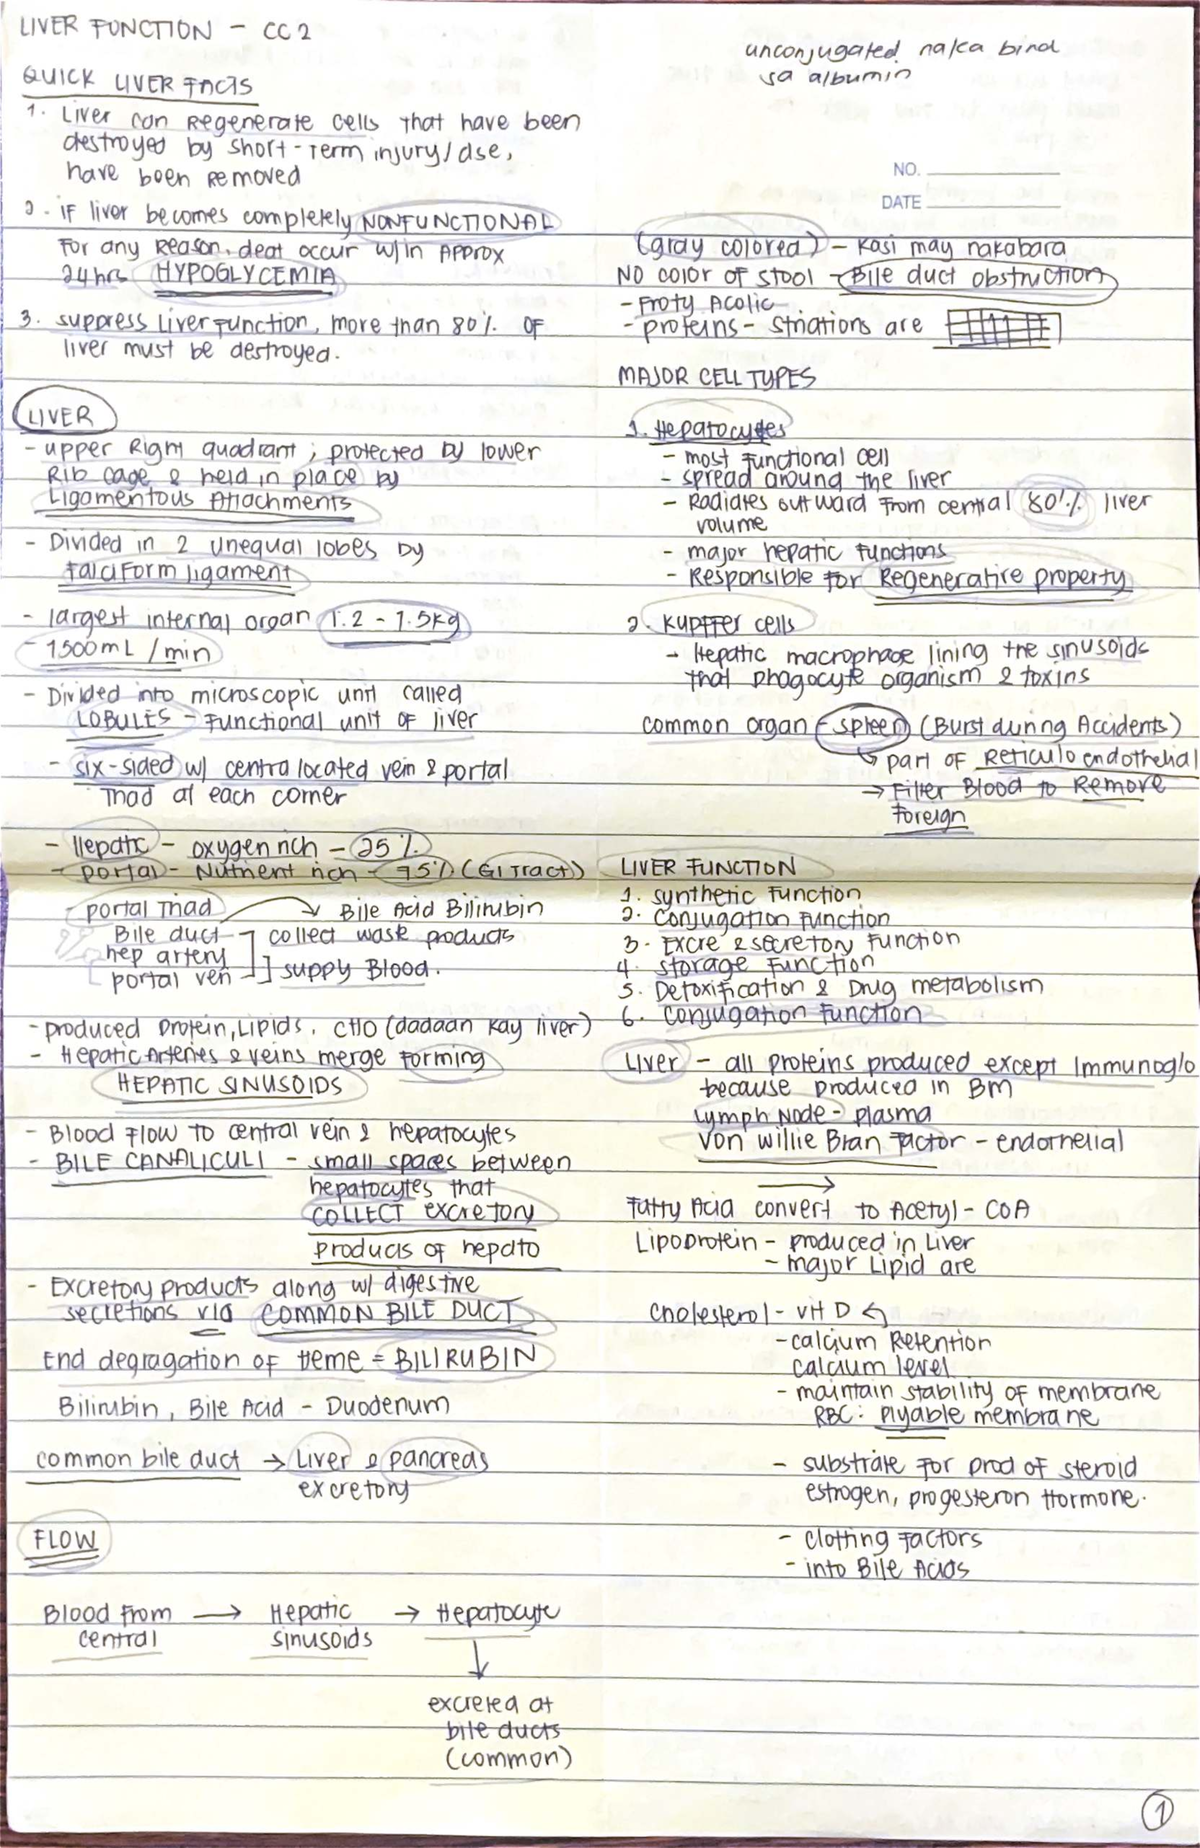 LIVER FUNCTION - CC2
QUICK LIVER FACTS
1. Liver can Regenerate cells that have been
destroyed by short-term injury/dse,
have been removed
2. if liver becomes completely NONFUNCTIONAL
For any Reason, deat occur w/in Approx
24 hrs HYPOGLYCEMIA
3. suppress Liver Function, more than 80% OF
liver must be destroyed.
LIVER
- upper Right quadrant ; protected by lower
Rib cage & held in place by
Ligamentous Attachments
- Divided in 2 unequal lobes by
falciform ligament
- largest internal organ 1.2 - 1.5kg
- 1500mL / min
- Divided into microscopic unit called
LOBULES - Functional unit of liver
- six-sided w/ centra located vein & portal
triad at each corner
- Hepatic - oxygen rich - 25%
- portal - Nutrient rich - 75% (GI Tract)
portal Triad → Bile Acid Bilirubin
Bile duct - collect waste products
hep artery
portal ven - supply Blood.
- produced Protein, Lipids, CHO (dadaan kay liver)
- Hepatic Arteries & veins merge Forming
HEPATIC SINUSOIDS
- Blood Flow to central vein & hepatocytes
- BILE CANALICULI - small spaces between
hepatocytes that
COLLECT excretory
products of hepato
- Excretory products along w/ digestive
secretions via COMMON BILE DUCT
End degragation of Heme = BILIRUBIN
Bilirubin, Bile Acid - Duodenum
common bile duct → Liver & pancreas
excretory
FLOW
Blood From → Hepatic → Hepatocyte
central sinusoids
↓
excreted at
bile ducts
(common)
unconjugated naka bind
sa albumin
NO.
DATE
(gray colored) - kasi may nakabara
NO color of stool - Bile duct obstruction
- Froty Acolic
- proteins - striations are
MAJOR CELL TYPES
1. Hepatocytes
- most Functional cell
- spread around the liver
- Radiates outward from central 80% liver
volume
- major hepatic functions
- Responsible for Regenerative property
2. Kupffer cells
- Hepatic macrophage lining the sinusoids
that phagocyte organism & toxins
common organ - spleen (Burst during Accidents)
↳ part of Reticulo endothelial
→ Filter Blood to Remove
Foreign
LIVER FUNCTION
1. synthetic Function
2. Conjugation Function
3. Excre & secretory Function
4. storage Function
5. Detoxification & Drug metabolism
6. Conjugation Function
Liver - all proteins produced except Immunoglo
because produced in BM
Lymph Node - plasma
Von willie Bran Factor - endothelial
Fatty Acid convert to Acetyl - COA
Lipoprotein - produced in Liver
- major Lipid are
cholesterol - vit D
- calcium Retention
calcium level
- maintain stability of membrane
RBC: Plyable membrane
- substrate for prod of steroid
estrogen, progesteron Hormone.
- clotting Factors
- into Bile Acids
1